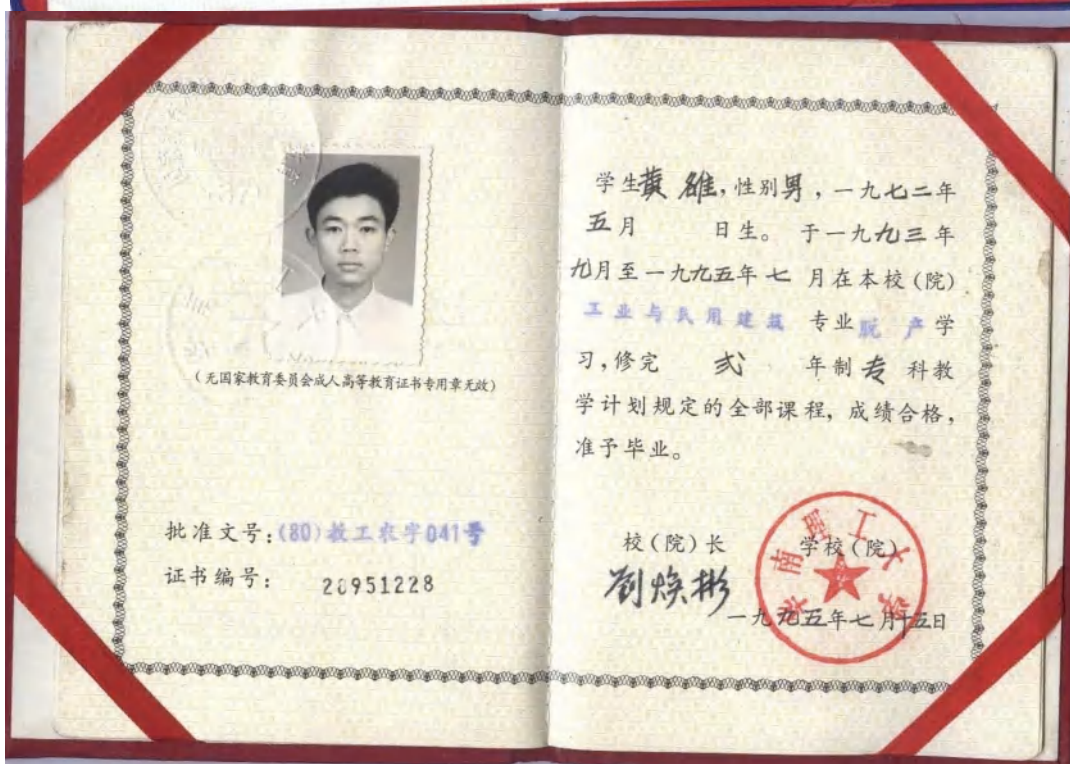 (无国家教育委员会成人高等教育证书专用章无效)
批准文号:(80)教工农字041号
证书编号: 20951228
学生黄雄,性别男,一九七二年
五月 日生。 于一九九三年
九月至一九九五年七 月在本校(院)
工业与民用建筑 专业脱 产学
习,修完 贰 年制专 科教
学计划规定的全部课程, 成绩合格,
准予毕业。
校(院)长 学校(院)
刘焕彬
一九九五年七月十五日
华南理工大学